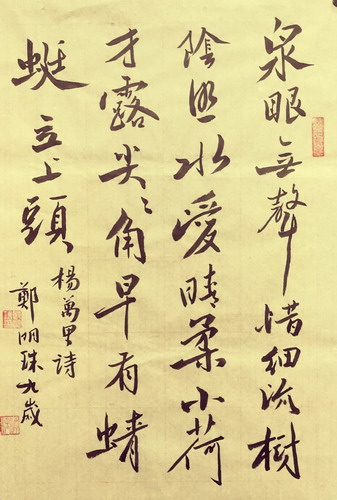 泉眼無聲惜細流樹
陰照水愛晴柔小荷
才露尖〻角早有蜻
蜓立上頭
楊萬里詩
鄭明珠九歲